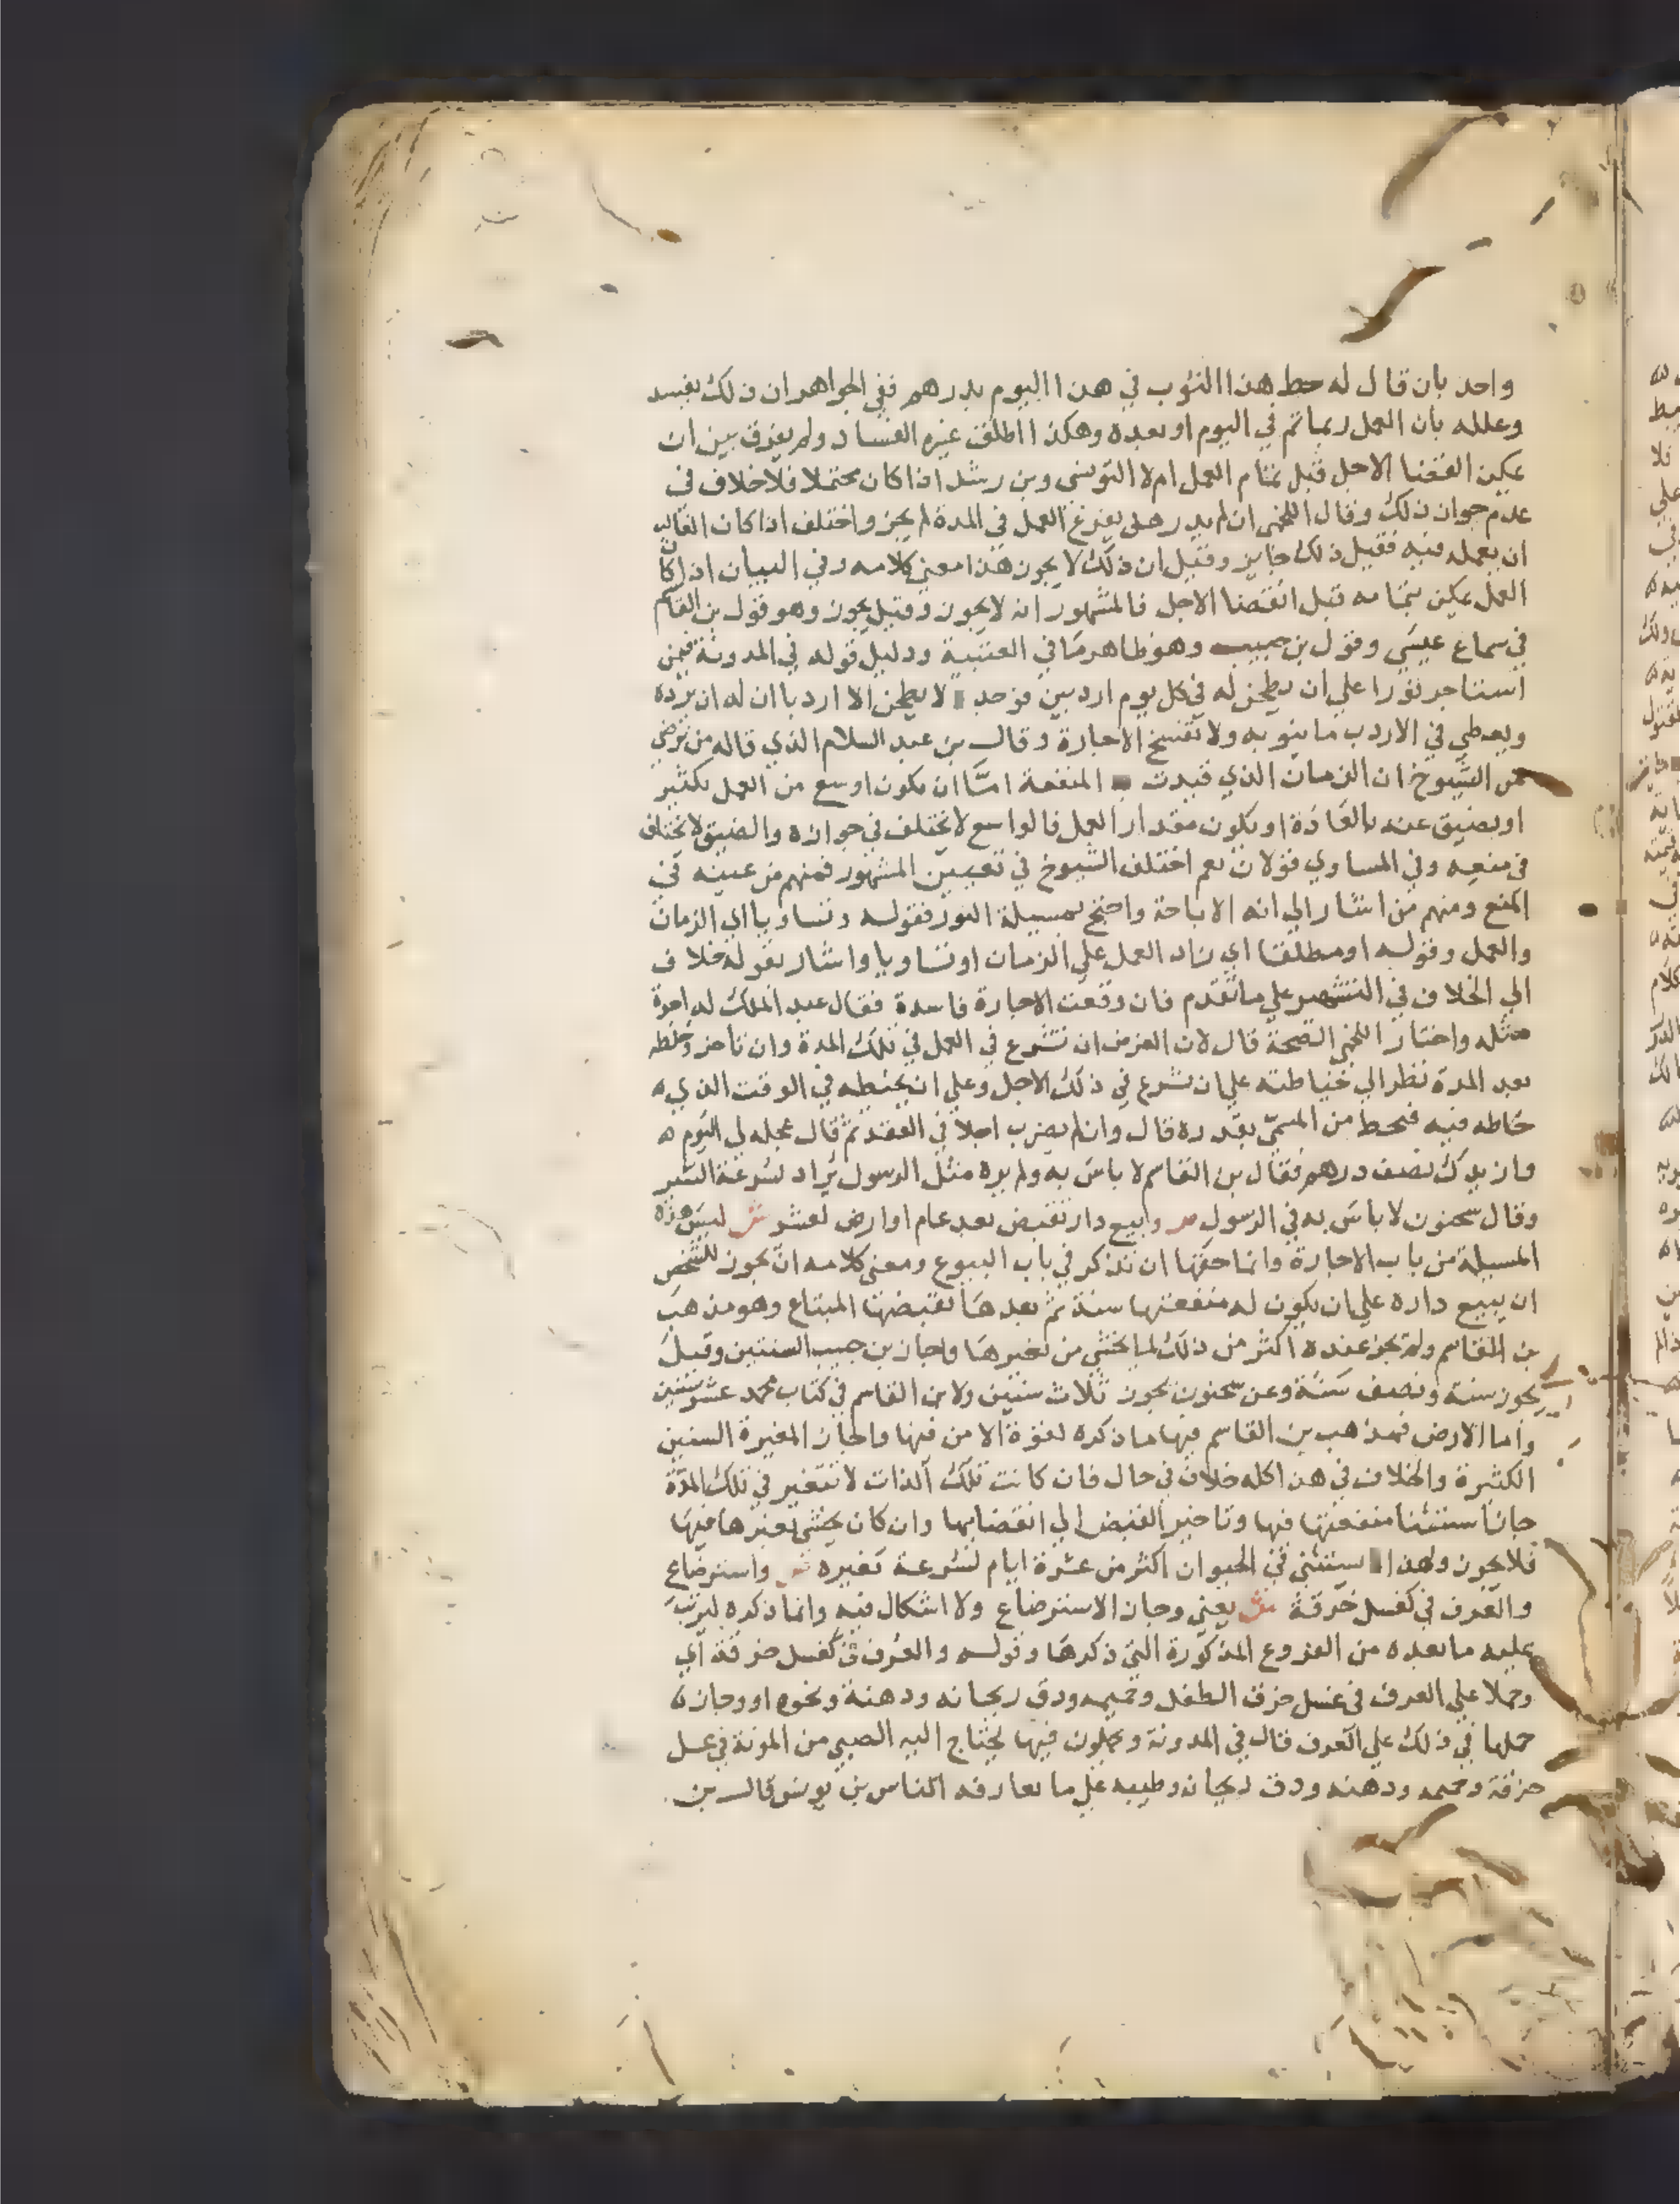 واحد بان قال له خط هذا الثوب في هذا اليوم بدرهم ففي الجواهر ان ذلك يفسد
وعلله بان العمل ربما تم في اليوم او بعده وهكذا اطلق غيره الفساد ولم يفرق بين ان
يمكن انقضا الاجل قبل تمام العمل ام لا التونسي وبن رشد اذا كان محتملا فلا خلاف في
عدم جواز ذلك وقال اللخمي ان لم يدر هل يفرغ العمل في المدة لم يجز واختلف اذا كان الغالب
ان يعمله فيه فقيل ذلك جايز وقيل ان ذلك لا يجوز هذا معنى كلامه وفي البيان اذا كان
العمل يمكن تمامه قبل انقضا الاجل فالمشهور انه لا يجوز وقيل يجوز وهو قول بن القاسم
في سماع عيسى وقول بن حبيب وهو ظاهر ما في العتبية ودليل قوله في المدونة فيمن
استاجر ثورا على ان يطحن له في كل يوم اردبين فوجد لا يطحن الا اردبا ان له ان يرده
ويعطي في الاردب ما ينوبه ولا تفسخ الاجارة وقال بن عبد السلام الذي قاله من نرضي
من الشيوخ ان الزمان الذي قيدت المنفعة اما ان يكون اوسع من العمل بكثير
او يضيق عنه بالعادة او يكون مقدار العمل فالواسع لا يختلف في جوازه والضيق لا يختلف
في منعه وفي المساوي قولان نعم اختلف الشيوخ في تعيين المشهور فمنهم من عينه في
المنع ومنهم من اشار الى انه الاباحة واحتج بمسيلة الثور فقوله وتساويا اي الزمان
والعمل وقوله او مطلقا اي زاد العمل علي الزمان او تساويا واشار بقوله خلاف
الي الخلاف في التشهير علي ما تقدم فان وقعت الاجارة فاسدة فقال عبد الملك له اجرة
مثله واختار اللخمي الصحة قال لان الغرض ان تشرع في العمل في تلك المدة وان تاخر وخلطه
بعد المدة نظر الي خياطته علي ان يشرع في ذلك الاجل وعلي ان يخيطه في الوقت الذي
خاطه فيه فيحط من المسمي بقدره قال وان لم يضرب اجلا في العقد ثم قال عجله لي اليوم
وازيدك نصف درهم فقال بن القاسم لا باس به ولم يره مثل الرسول يزاد لسرعة السير
وقال سحنون لا باس به في الرسول ص وبيع دار لتقبض بعد عام او ارض لعشر ش ليس هذه
المسيلة من باب الاجارة وانما حقها ان تذكر في باب البيوع ومعنى كلامه ان يجوز للشخص
ان يبيع داره علي ان يكون له منفعتها سنة ثم بعدها يقبضها المبتاع وهو مذهب
بن القاسم ولم يجز عنده اكثر من ذلك لما يخشى من تغيرها واجاز بن حبيب السنتين وقيل
يجوز سنة ونصف سنة وعن سحنون يجوز ثلاث سنين ولابن القاسم في كتاب محمد عشر سنين
واما الارض فمذهب بن القاسم فيها ما ذكره لقوة الامن فيها واجاز المغيرة السنين
الكثيرة والخلاف في هذا كله خلاف في حال فان كانت تلك الذات لا تتغير في تلك المدة
جاز استثنا منفعتها فيها وتاخير القبض الي انقضايها وان كان يخشى تغيرها فيها
فلا يجوز ولهذا استثني في الحيوان اكثر من عشرة ايام لسرعة تغيره ص واسترضاع
والعرف في كغسل خرقة ش يعني وجاز الاسترضاع ولا اشكال فيه وانما ذكره ليرتب
عليه ما بعده من الفروع المذكورة التي ذكرها وقوله والعرف في كغسل خرقة اي
وحملا علي العرف في غسل خرق الطفل وحميمه ودق ريحانه ودهنه ونحوه او وجاز
حملها في ذلك علي العرف قال في المدونة ويحملون فيها يحتاج اليه الصبي من المونة في غسل
خرقة وحميمه ودهنه ودق ريحانه وطيبه علي ما تعارفه الناس بن يونس قال بن